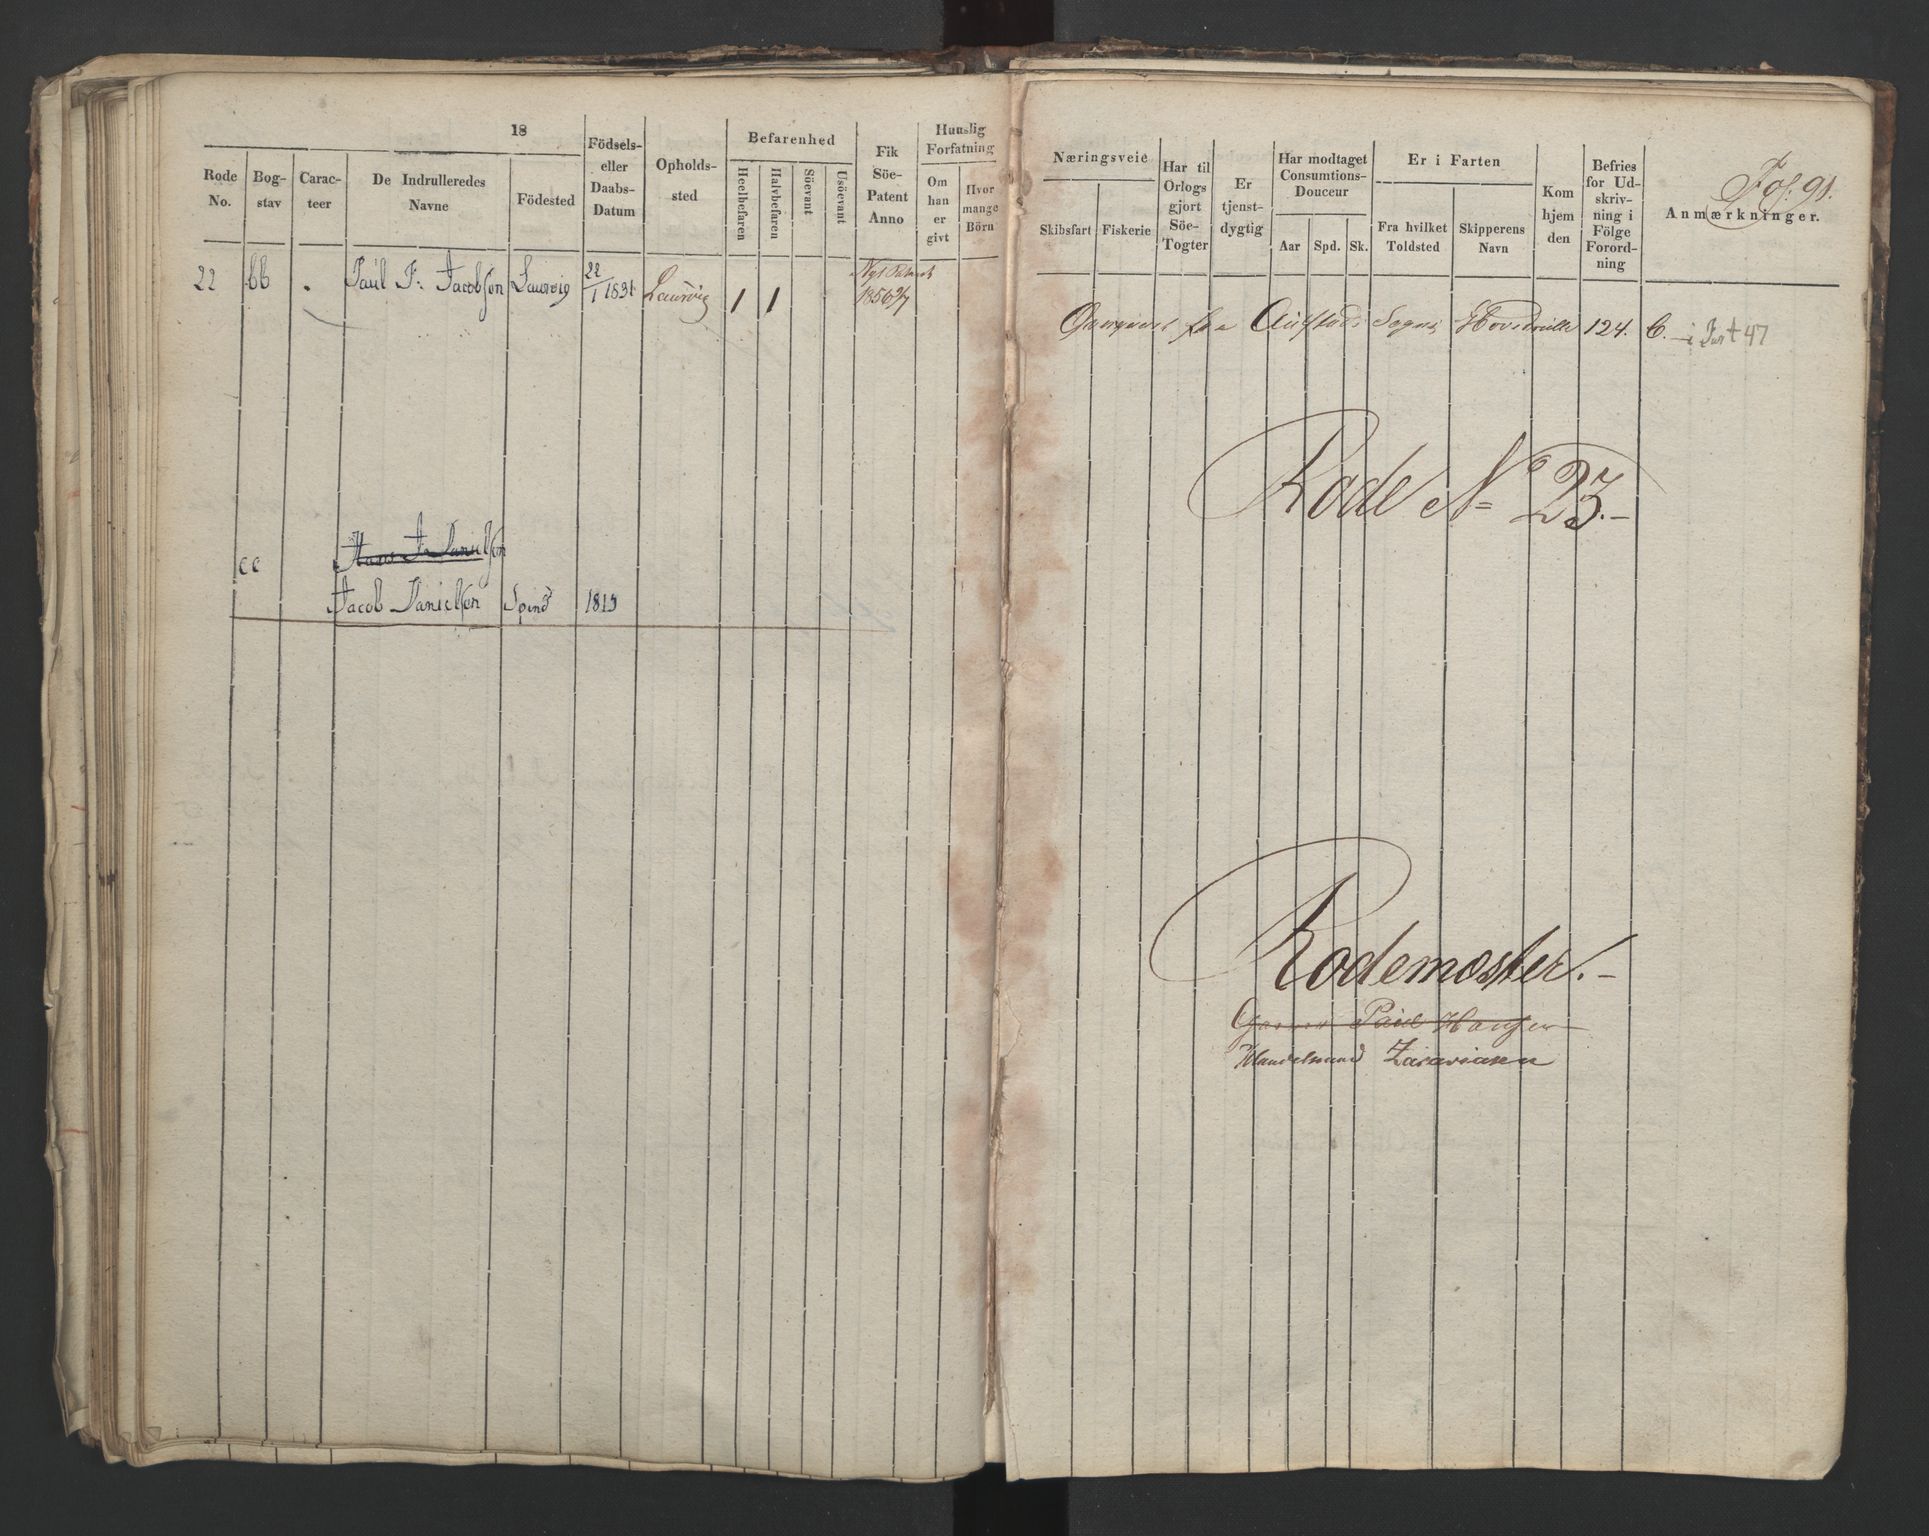 18
Rode No.
Bog-stav
Carac-teer
De Indrulleredes Navne
Födested
Födsels- eller Daabs-Datum
Opholds-sted
Befarenhed
Heelbefaren
Halvbefaren
Söevant
Usöevant
Fik Söe-Patent Anno
Huuslig Forfatning
Om han er givt
Hvor mange Börn
22 bb . Paul F. Jacobsen Laurvig 22/1 1831 Laurvig 1 1 Nyt Patent 1856
cc Hans J. Danielsen
Jacob Danielsen Spind 1819
Fol: 91.
Næringsveie
Skibsfart
Fiskerie
Har til Orlogs gjort Söe-Togter
Er tjenst-dygtig
Har modtaget Consumtions-Douceur
Aar
Spd.
Sk.
Er i Farten
Fra hvilket Toldsted
Skipperens Navn
Kom hjem den
Befries for Ud-skriv-ning i Fölge Forord-ning
Anmærkninger.
fra Austads Sogns Hovedrulle 124. C. - i Fart 47
Rode No 23.-
Rodemester.-
Paul Hansen
Handelsmand Zacariasen